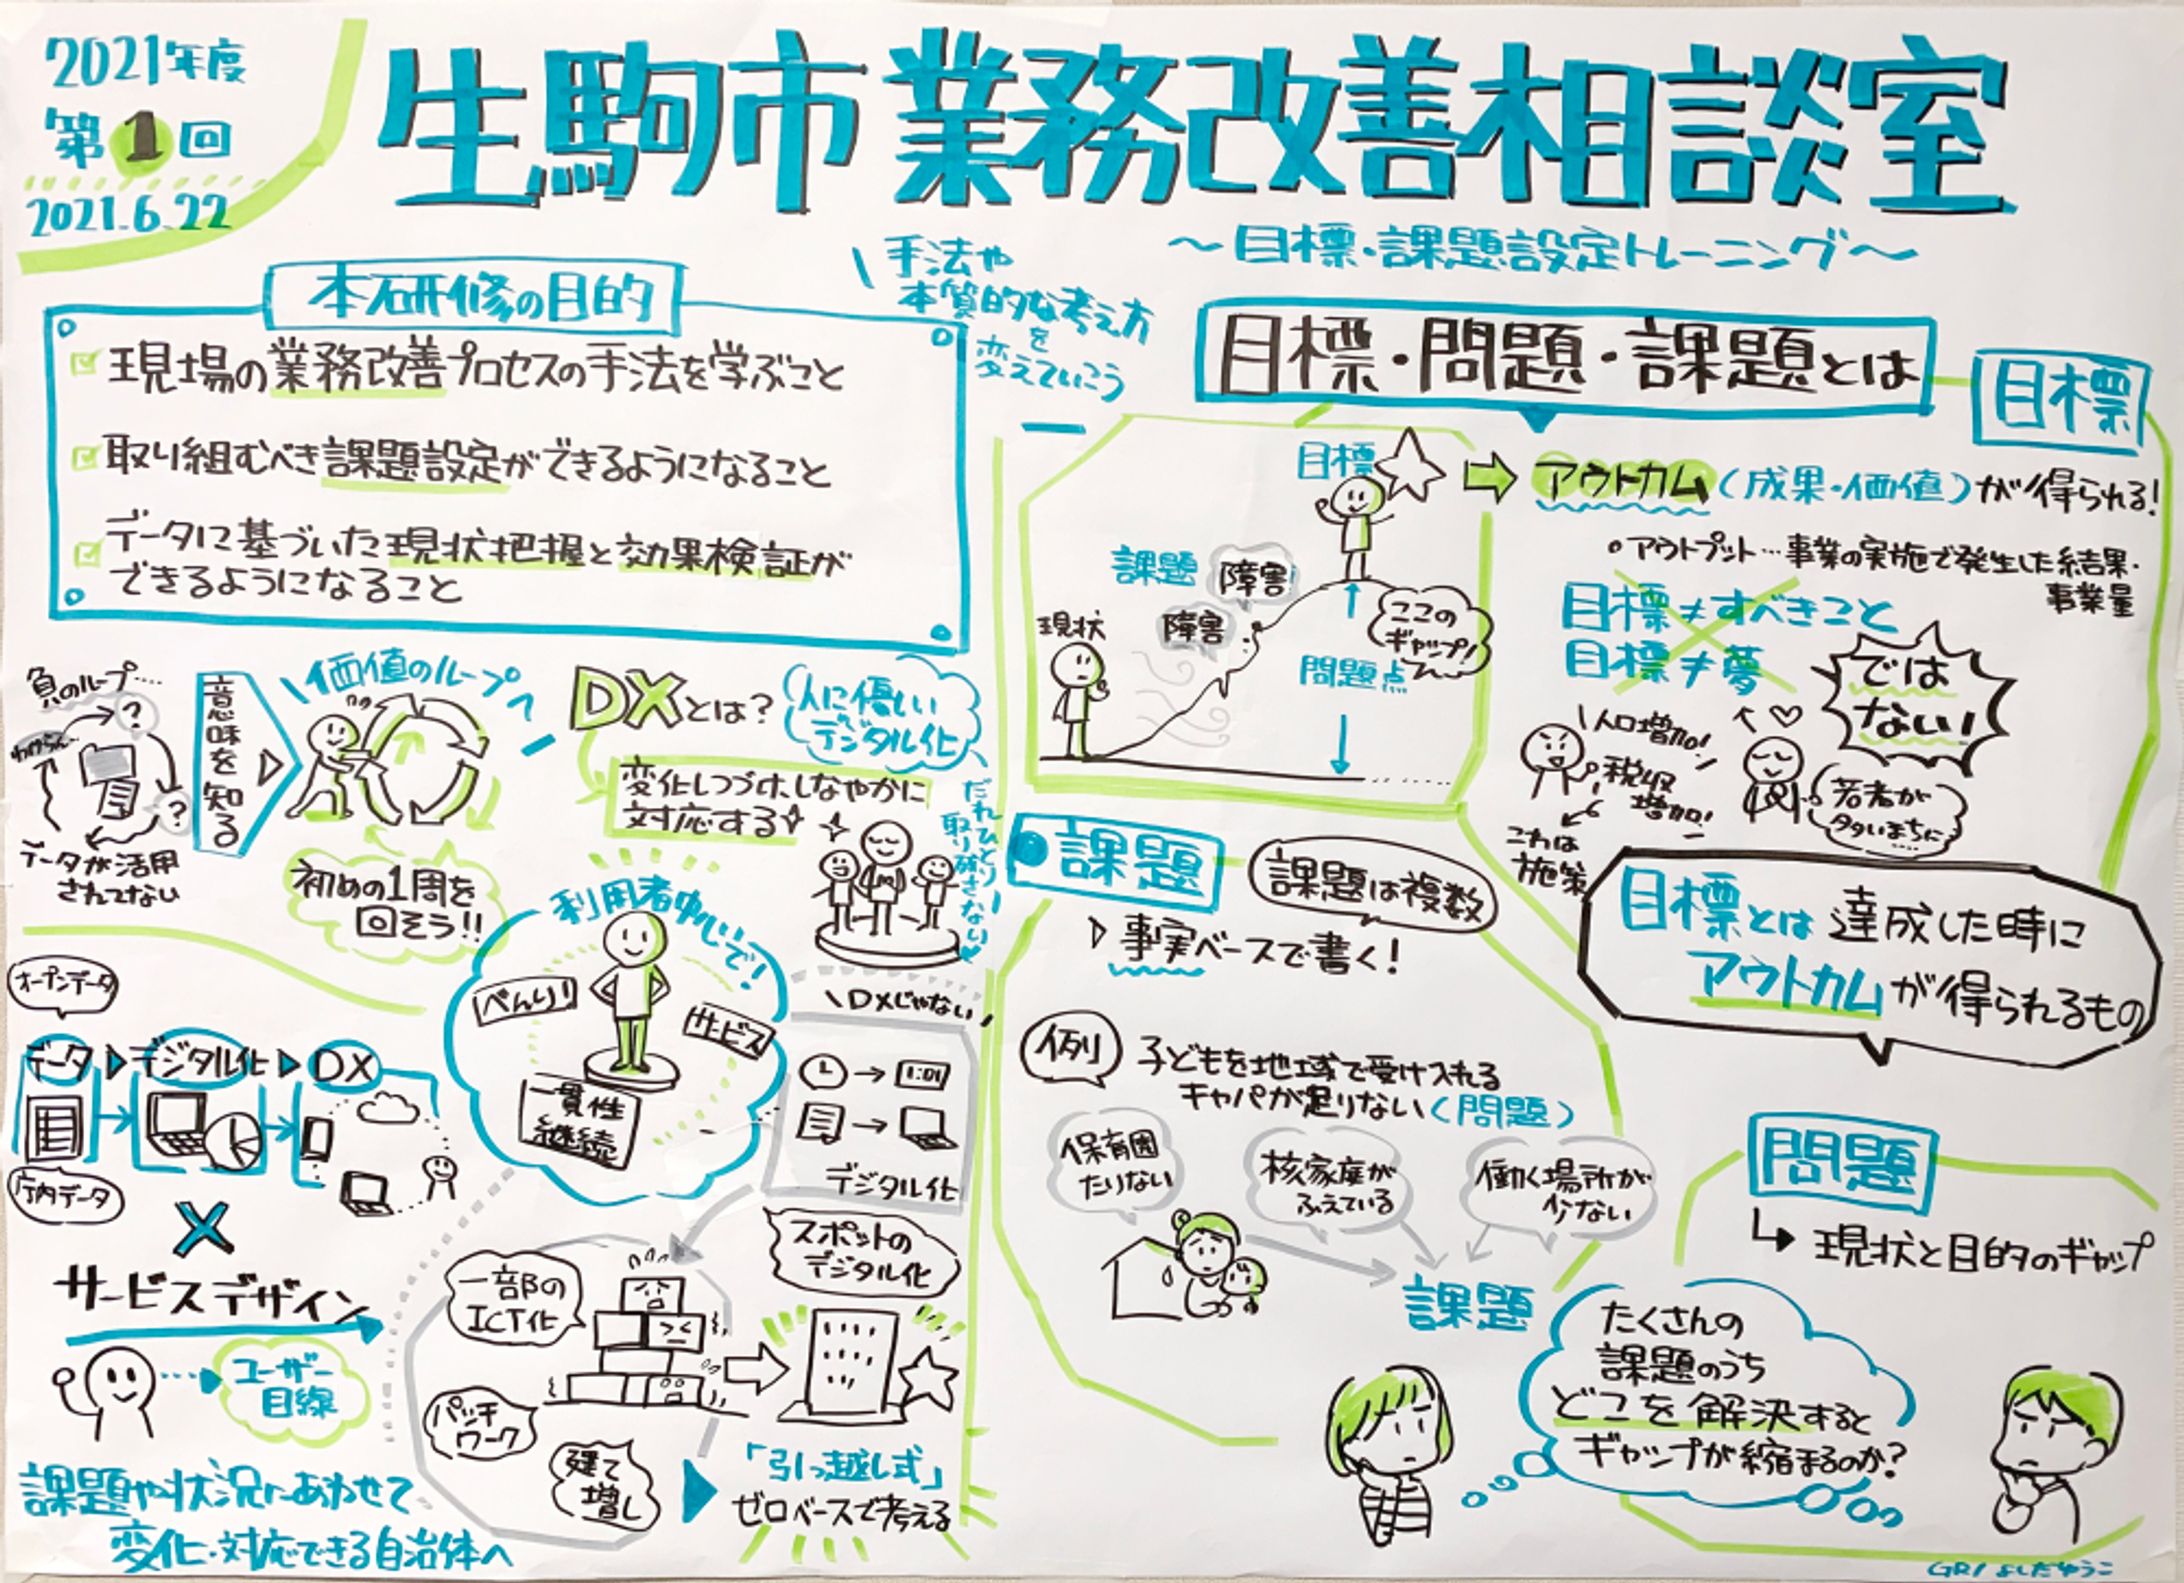 2021年度
第1回
2021.6.22
生駒市業務改善相談室
〜目標・課題設定トレーニング〜
本研修の目的
現場の業務改善プロセスの手法を学ぶこと
取り組むべき課題設定ができるようになること
データに基づいた現状把握と効果検証が
できるようになること
手法や
本質的な考え方
を
変えていこう
負のループ....
?
わからん...
?
データが活用
されてない
意味を知る
価値のループへ
初めの1周を
回そう!!
DXとは?
人に優しい
デジタル化
変化しつづけ、しなやかに
対応する
だれひとり
取り残さない
利用者中心で!
べんり!
サービス
一貫性
継続
オープンデータ
データ▷デジタル化▷DX
庁内データ
×
サービスデザイン
ユーザー
目線
課題や状況にあわせて
変化・対応できる自治体へ
DXじゃない
1:01
デジタル化
一部の
ICT化
スポットの
デジタル化
パッチ
ワーク
建て
増し
「引っ越し式」
ゼロベースで考える
目標・問題・課題とは
目標
目標
課題
障害
障害
現状
ここの
ギャップ!
問題点
アウトカム(成果・価値)が得られる!
・アウトプット…事業の実施で発生した結果・
事業量
目標≠すべきこと
目標≠夢
ではない!
人口増加!
税収
増加!
これは
施策
若者が
多いまちに
目標とは達成した時に
アウトカムが得られるもの
課題
課題は複数
▷事実ベースで書く!
例
子どもを地域で受け入れる
キャパが足りない(問題)
保育園
たりない
核家庭が
ふえている
働く場所が
少ない
課題
問題
↳現状と目的のギャップ
たくさんの
課題のうち
どこを解決すると
ギャップが縮まるのか?
GR/よしだゆうこ